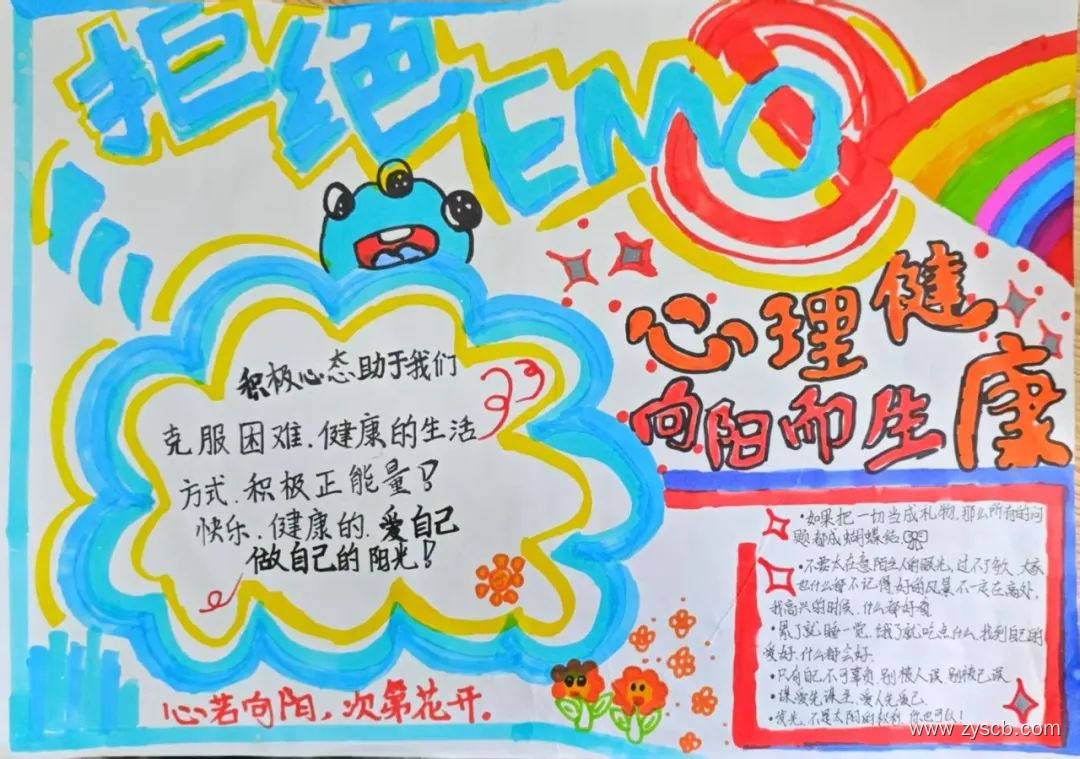 拒绝EMO
心理健康
向阳而生
积极心态助于我们
克服困难、健康的生活
方式、积极正能量！
快乐、健康的、爱自己
做自己的阳光！
心若向阳，次第花开。
•如果把一切当成礼物，那么所有的问
题都成蝴蝶结
•不要太在意陌生人的眼光，过不了多久，大家
也什么都不记得，好的风景不一定在高处，
我高兴的时候，什么都好看
•累了就睡一觉，饿了就吃点什么，找到自己的
爱好，什么都会好.
•只有自己不可辜负，别被人误，别被己误
•谋爱先谋生，爱人先爱己.
•发光，不是太阳的权利，你也可以！
www.zyscb.com